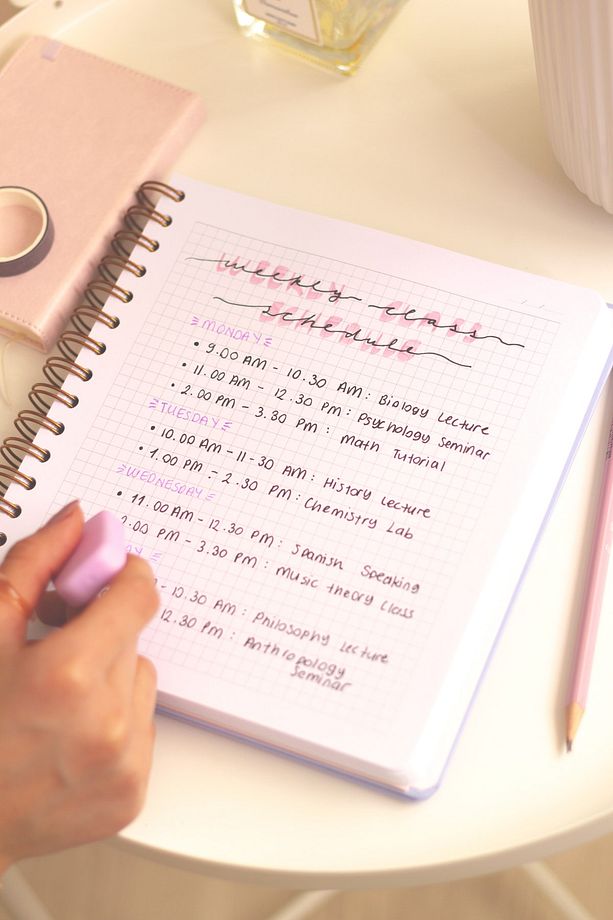 weekly class
schedule
MONDAY
• 9.00 AM - 10.30 AM: Biology Lecture
• 11.00 AM - 12.30 PM: Psychology Seminar
• 2.00 PM - 3.30 PM: Math Tutorial
TUESDAY
• 10.00 AM - 11-30 AM: History Lecture
• 1.00 PM - 2.30 PM: Chemistry Lab
WEDNESDAY
• 11.00 AM - 12.30 PM: Spanish Speaking
2:00 PM - 3.30 PM: Music theory Class
AY
- 10.30 AM: Philosophy Lecture
12.30 PM: Anthropology
Seminar